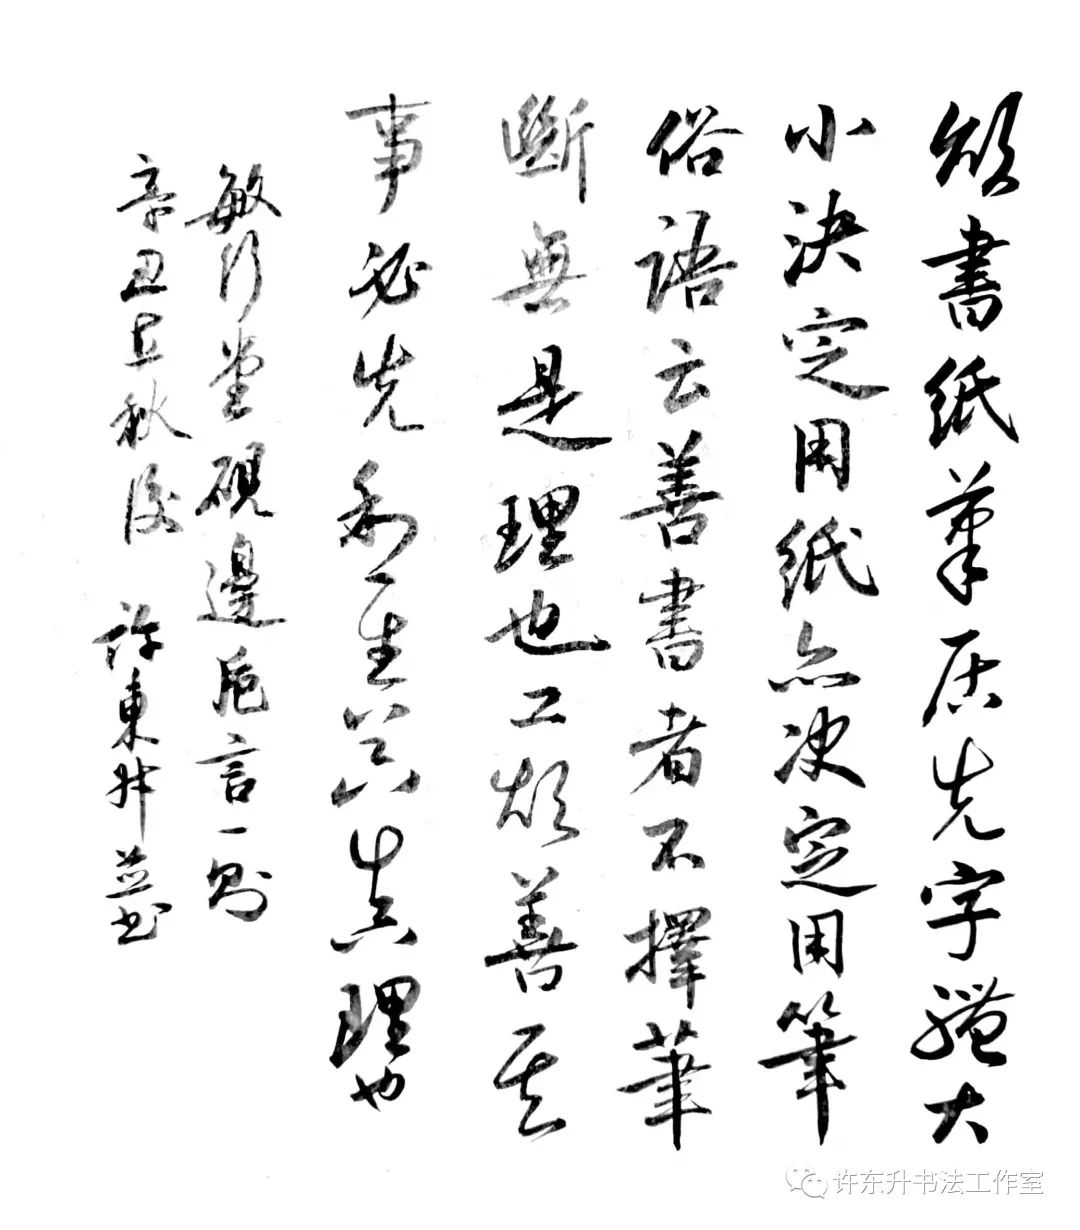 欲書紙筆居先字體大
小決定用紙亦决定用筆
俗語云善書者不擇筆
斷無是理也工欲善其
事必先利其器真理也
敏行堂硯邊卮言一則
辛丑立秋後 許東升並書
许东升书法工作室